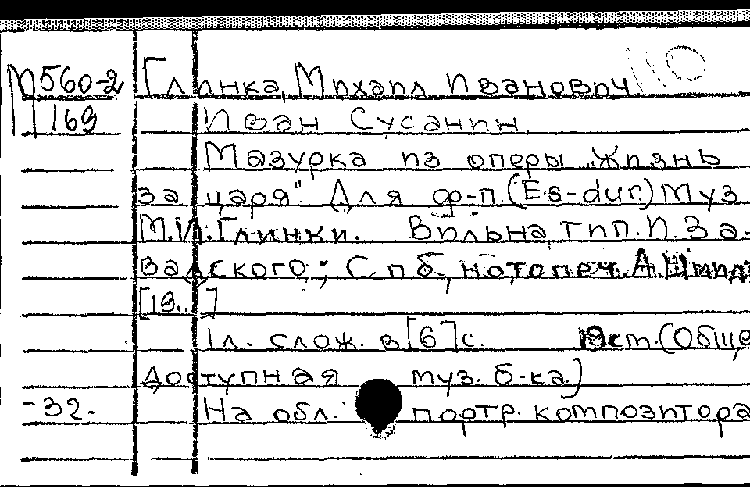 М560-2 Глинка, Михаил Иванович
П 169 Иван Сусанин
Мазурка из оперы „Жизнь
за царя" Для ф-п (Es-dur) Муз
М.И. Глинки. Вильна, тип. И. За-
вадского; Спб, нотопеч. А.
[19..]
1 л. слож. в [6] с. (Обще
доступная муз. б-ка)
-32. На обл. портр. композитора